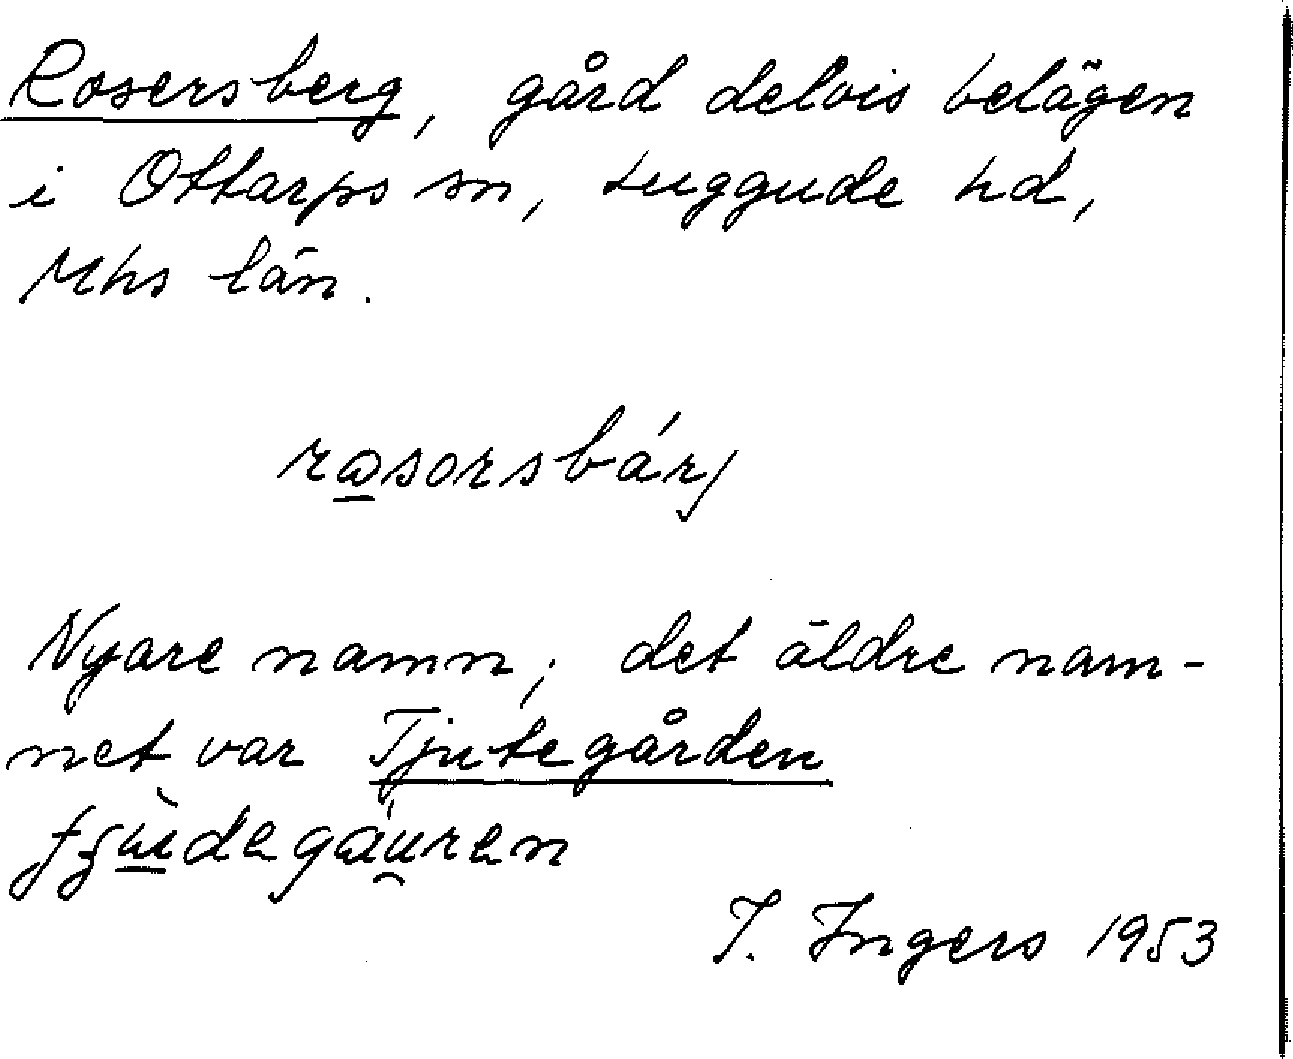 Rosersberg, gård delvis belägen
i Ottarps sn, Luggude hd,
Mhs län.
rɷsorsbárj
Nyare namn; det äldre nam-
net var Tjutegården
I. Ingers 1953